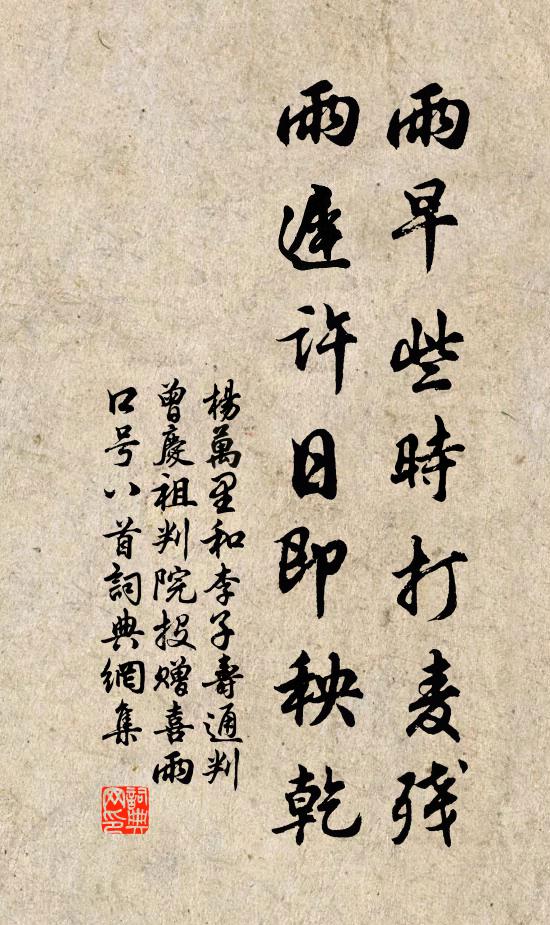 雨早些時打麦残
雨遲許日即秧乾
楊萬里和李子壽通判
曾慶祖判院投贈喜雨
口号八首詞典網集
詞典网印